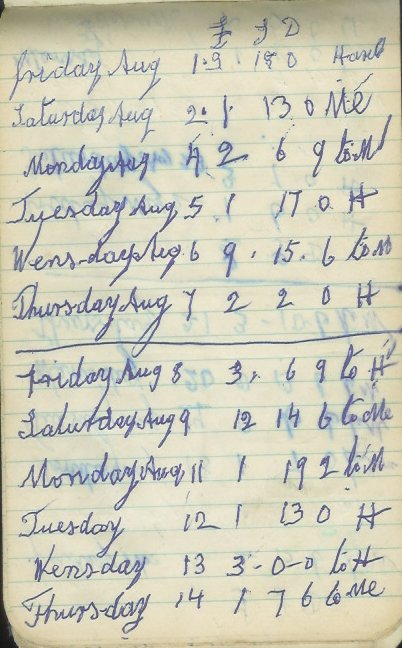 £ S D
Friday Aug 1 . 9 15 0 Hand
Saturday Aug 2 . 1 13 0 Me
Monday Aug 4 2 6 9 to M
Tuesday Aug 5 1 17 0 H
Wensday Aug 6 9 . 15 . 6 to M
Thursday Aug 7 2 2 0 H
Friday Aug 8 3 . 6 9 to H
Saturday Aug 9 12 14 6 to Me
Monday Aug 11 1 19 2 to M
Tuesday 12 1 13 0 H
Wensday 13 3-0-0 to H
Thursday 14 1 7 6 to Me